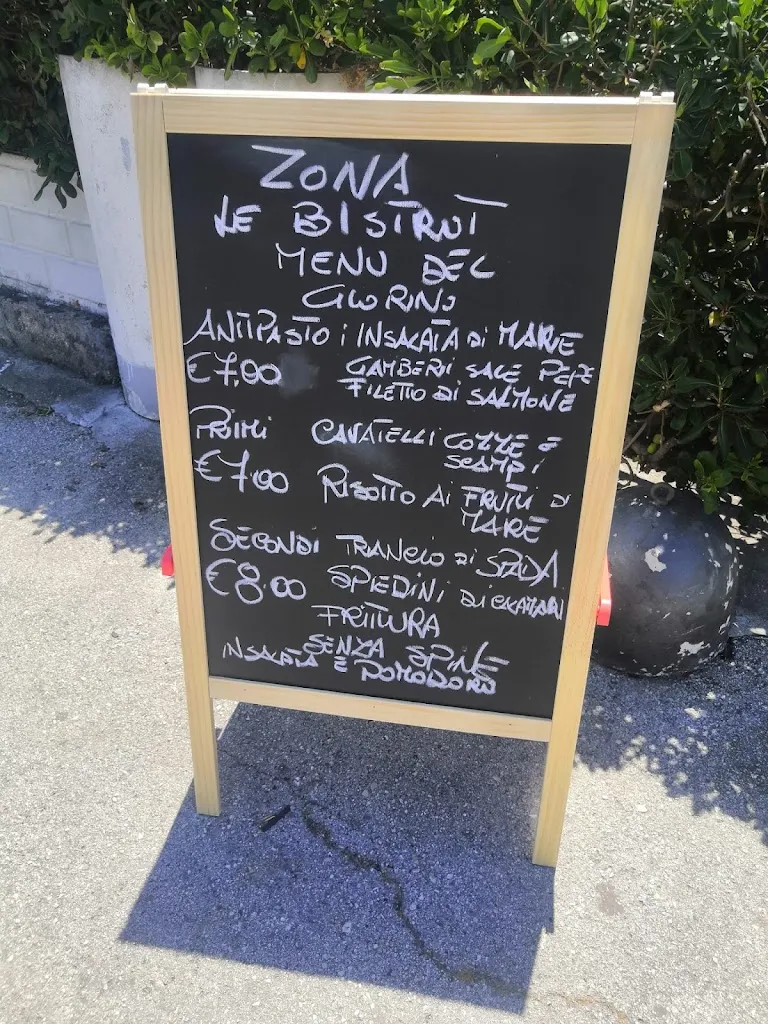 ZONA
LE BISTROT
MENU DEL
GIORNO
ANTIPASTO INSALATA DI MARE
€7,00 GAMBERI SALE PEPE
FILETTO DI SALMONE
PRIMI CAVATELLI COZZE E
SCAMPI
€7,00 RISOTTO AI FRUTTI DI
MARE
SECONDI TRANCIO DI SPADA
€8,00 SPIEDINI DI CALAMARI
FRITTURA
SENZA SPINE
INSALATA E POMODORO